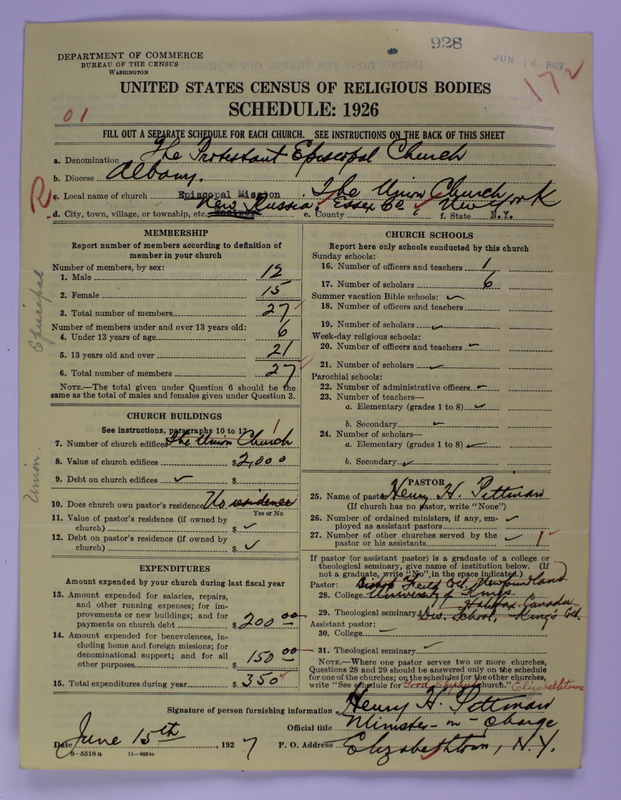 928
JUN 16 1927
172
DEPARTMENT OF COMMERCE
BUREAU OF THE CENSUS
WASHINGTON
UNITED STATES CENSUS OF RELIGIOUS BODIES
SCHEDULE: 1926
01
FILL OUT A SEPARATE SCHEDULE FOR EACH CHURCH. SEE INSTRUCTIONS ON THE BACK OF THIS SHEET
a. Denomination The Protestant Episcopal Church
b. Diocese Albany.
R
c. Local name of church Episcopal Mission The Union Church
d. City, town, village, or township, etc. New Russia, Essex Co., New York e. County f. State N.Y.
MEMBERSHIP
Report number of members according to definition of
member in your church
Number of members, by sex:
1. Male 12
2. Female 15
3. Total number of members 27
Number of members under and over 13 years old:
4. Under 13 years of age 6
5. 13 years old and over 21
6. Total number of members 27
NOTE.—The total given under Question 6 should be the
same as the total of males and females given under Question 3.
Episcopal
Union.
CHURCH BUILDINGS
See instructions, paragraphs 10 to 12
7. Number of church edifices The Union Church 1
8. Value of church edifices $2,000
9. Debt on church edifices $
10. Does church own pastor's residence No residence
Yes or No
11. Value of pastor's residence (if owned by
church) $
12. Debt on pastor's residence (if owned by
church) $
EXPENDITURES
Amount expended by your church during last fiscal year
13. Amount expended for salaries, repairs,
and other running expenses; for im-
provements or new buildings; and for
payments on church debt $200 00
14. Amount expended for benevolences, in-
cluding home and foreign missions; for
denominational support; and for all
other purposes 150 00
15. Total expenditures during year $350
CHURCH SCHOOLS
Report here only schools conducted by this church
Sunday schools:
16. Number of officers and teachers 1
17. Number of scholars 6
Summer vacation Bible schools:
18. Number of officers and teachers
19. Number of scholars
Week-day religious schools:
20. Number of officers and teachers
21. Number of scholars
Parochial schools:
22. Number of administrative officers
23. Number of teachers—
a. Elementary (grades 1 to 8)
b. Secondary
24. Number of scholars—
a. Elementary (grades 1 to 8)
b. Secondary
PASTOR
25. Name of pastor Henry H. Pittman
(If church has no pastor, write "None")
26. Number of ordained ministers, if any, em-
ployed as assistant pastors
27. Number of other churches served by the
pastor or his assistants 1
If pastor (or assistant pastor) is a graduate of a college or
theological seminary, give name of institution below. (If
not a graduate, write "No" in the space indicated.)
Pastor: Bishop Feild Col. Newfoundland
28. College University of King's
Halifax, Canada
29. Theological seminary Div. School, King's Col.
Assistant pastor:
30. College
31. Theological seminary
NOTE.—Where one pastor serves two or more churches,
Questions 28 and 29 should be answered only on the schedule
for one of the churches; on the schedules for the other churches,
write "See schedule for Good Shepherd church." Elizabethtown
Signature of person furnishing information Henry H. Pittman
Official title Minister-in-charge
Date June 15th, 1927 P. O. Address Elizabethtown, N.Y.